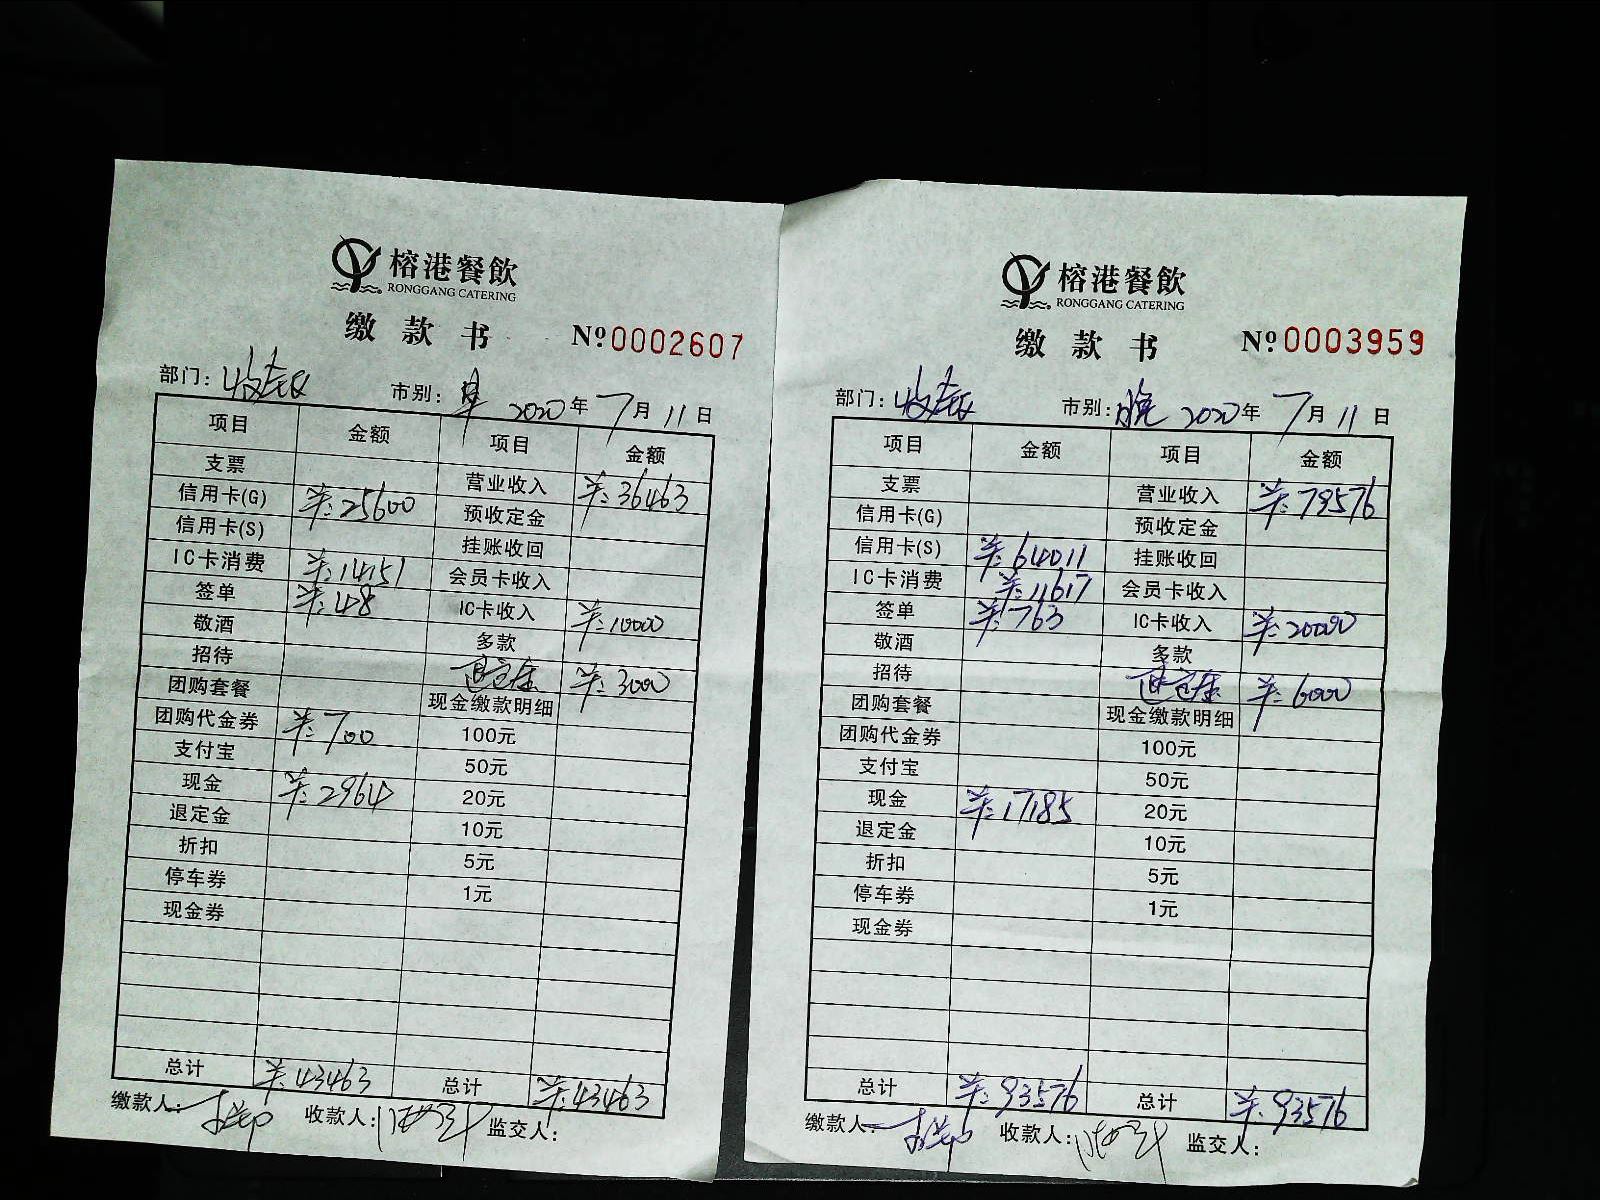 榕港餐飲
RONGGANG CATERING
缴款书 №0002607
部门: 市别: 早 2020年7月11日
项目 金额 项目 金额
支票 营业收入 ¥:36463
信用卡(G) ¥:25600 预收定金
信用卡(S) 挂账收回
IC卡消费 ¥:14151 会员卡收入
签单 ¥:48 IC卡收入 ¥:10000
敬酒 多款
招待 退定金 ¥:3000
团购套餐 现金缴款明细
团购代金券 ¥:700 100元
支付宝 50元
现金 ¥:2964 20元
退定金 10元
折扣 5元
停车券 1元
现金券
总计 ¥:43463 总计 ¥:43463
缴款人: 收款人: 监交人:
榕港餐飲
RONGGANG CATERING
缴款书 №0003959
部门: 市别: 晚 2020年7月11日
项目 金额 项目 金额
支票 营业收入 ¥:79576
信用卡(G) 预收定金
信用卡(S) ¥:64011 挂账收回
IC卡消费 ¥:11617 会员卡收入
签单 ¥:763 IC卡收入 ¥:20000
敬酒 多款
招待 退定金 ¥:6000
团购套餐 现金缴款明细
团购代金券 100元
支付宝 50元
现金 ¥:17185 20元
退定金 10元
折扣 5元
停车券 1元
现金券
总计 ¥:93576 总计 ¥:93576
缴款人: 收款人: 监交人: